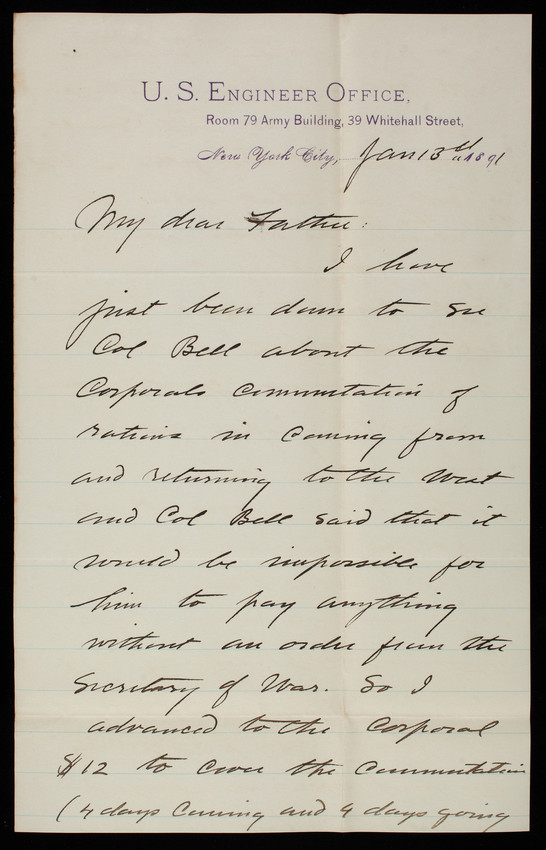 U. S. ENGINEER OFFICE,
Room 79 Army Building, 39 Whitehall Street,
New York City, Jan 13th 1891
My dear Father:
I have
just been down to see
Col Bell about the
Corporals commutation of
rations in coming from
and returning to the West
and Col Bell said that it
would be impossible for
him to pay anything
without an order from the
Secretary of War. So I
advanced to the Corporal
$12 to cover the commutation
(4 days coming and 4 days going